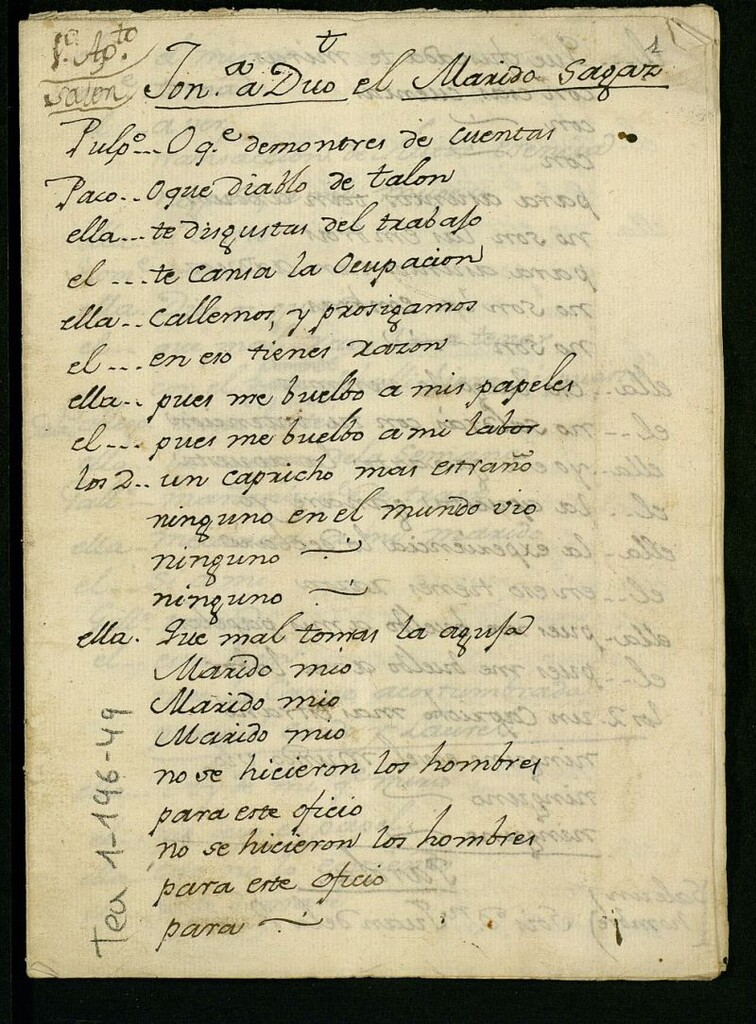 1.ª Ap.to
Salon
t
1
Ton.ª a Duo el Marido Sagaz
Pulp.º... O q.e demontres de cuentas
Paco.. O que diablo de talon
ella... te disgustas del trabajo
el .... te cansa la Ocupacion
ella.. callemos, y prosigamos
el .... en eso tienes razon
ella.. pues me buelbo a mis papeles
el .... pues me buelbo a mi labor
los 2.. un capricho mas estraño
ninguno en el mundo vio
ninguno
ninguno
ella. Que mal tomas la aguja
Marido mio
Marido mio
Marido mio
no se hicieron los hombres
para este oficio
no se hicieron los hombres
para este oficio
para
Tea 1-196-49